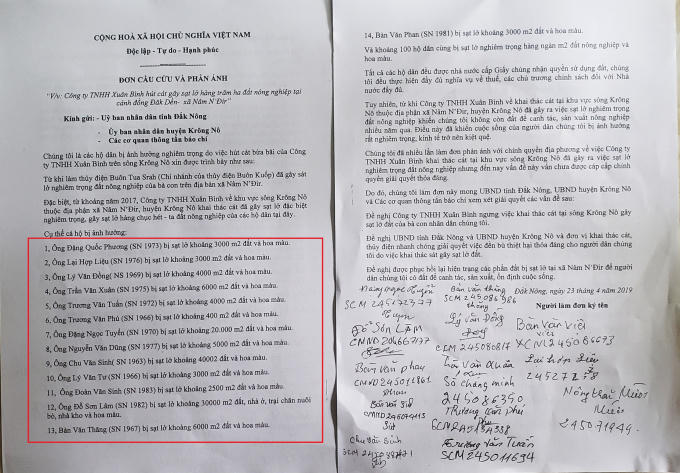 CỘNG HOÀ XÃ HỘI CHỦ NGHĨA VIỆT NAM
Độc lập - Tự do - Hạnh phúc
ĐƠN CẦU CỨU VÀ PHẢN ÁNH
"V/v: Công ty TNHH Xuân Bình hút cát gây sạt lở hàng trăm ha đất nông nghiệp tại
cánh đồng Đăk Dên- xã Nâm N'Đir"
Kính gửi: - Uỷ ban nhân dân tỉnh Đắk Nông
- Ủy ban nhân dân huyện Krông Nô
- Các cơ quan thông tấn báo chí
Chúng tôi là các hộ dân bị ảnh hưởng nghiêm trọng do việc hút cát bừa bãi của Công
ty TNHH Xuân Bình trên sông Krông Nô xin được trình bày như sau:
Từ khi làm thủy điện Buôn Tua Srah (Chi nhánh của thủy điện Buôn Kuốp) đã gây sát
lở nghiêm trọng đất nông nghiệp của bà con trên địa bàn xã Nâm N'Đir.
Đặc biệt, từ khoảng năm 2017, Công ty TNHH Xuân Bình về khu vực sông Krông Nô
thuộc địa phận xã Nâm N'Đir, huyện Krông Nô khai thác cát đã gây sạt lở đặc biệt
nghiêm trọng, gây sạt lở hàng chục hét - ta đất nông nghiệp của các hộ dân tại đây.
Cụ thể có hộ bị ảnh hưởng:
1, Ông Đặng Quốc Phương (SN 1973) bị sạt lở khoảng 3000 m2 đất và hoa màu.
2, Ông Lại Hợp Liệu (SN 1976) bị sạt lở khoảng 3000 m2 đất và hoa màu.
3, Ông Lý Văn Đồng( NS 1969) bị sạt lở khoảng 4000 m2 đất và hoa màu.
4, Ông Trần Văn Xuân (SN 1975) bị sạt lở khoảng 6000 m2 đất và hoa màu.
5, Ông Trương Văn Tuấn (SN 1972) bị sạt lở khoảng 4000 m2 đất và hoa màu.
6, Ông Trương Văn Phú (SN 1966) bị sạt lở khoảng 400 m2 đất và hoa màu.
7, Ông Đặng Ngọc Tuyển (SN 1970) bị sạt lở khoảng 20.000 m2 đất và hoa màu.
8, Ông Nguyễn Văn Dũng (SN 1977) bị sạt lở khoảng 5000 m2 đất và hoa màu.
9, Ông Chu Văn Sinh( SN 1963) bị sạt lở khoảng 40002 đất và hoa màu.
10, Ông Lý Văn Tư (SN 1966) bị sạt lở khoảng 3000 m2 đất và hoa màu.
11, Ông Đoàn Văn Sinh (SN 1983) bị sạt lở khoảng 2500 m2 đất và hoa màu.
12, Ông Đỗ Sơn Lâm (SN 1982) bị sạt lở khoảng 30000 m2 đất, nhà ở, trại chăn nuôi
bò, nhà kho và hoa màu.
13, Bàn Văn Thăng (SN 1967) bị sạt lở khoảng 6000 m2 đất và hoa màu.
14, Bàn Văn Phan (SN 1981) bị sạt lở khoảng 3000 m2 đất và hoa màu.
Và khoảng 100 hộ dân cùng bị sạt lở nghiêm trọng hàng ngàn m2 đất nông nghiệp và
hoa màu.
Tất cả các hộ dân đều được nhà nước cấp Giấy chứng nhận quyền sử dụng đất, chúng
tôi đều thực hiện đầy đủ nghĩa vụ về thuế, các chủ trương chính sách đối với Nhà
nước đầy đủ.
Tuy nhiên, từ khi Công ty TNHH Xuân Bình về khai thác cát tại khu vực sông Krông
Nô thuộc địa phận xã Nâm N'Đir, huyện Krông Nô đã gây ra việc sạt lở nghiêm trọng
đất nông nghiệp khiến chúng tôi không còn đất để canh tác, sản xuất nông nghiệp
nhiều năm qua. Điều này đã khiến cuộc sống của người dân chúng tôi bị ảnh hưởng
rất nghiêm trọng, kinh tế trở nên kiệt quệ.
Chúng tôi đã nhiều lần làm đơn phản ánh với chính quyền địa phương về việc Công ty
TNHH Xuân Bình khai thác cát tại khu vực sông Krông Nô đã gây ra việc sạt lở
nghiêm trọng đất nông nghiệp nhưng đến nay vấn đề này vẫn chưa được cấp cấp chính
quyền giải quyết thỏa đáng.
Do đó, chúng tôi làm đơn này mong UBND tỉnh Đắk Nông, UBND huyện Krông Nô
và Các cơ quan thông tấn báo chí xem xét giải quyết các vấn đề sau:
Đề nghị Công ty TNHH Xuân Bình ngưng việc khai thác cát tại sông Krông Nô gây
sạt lở đất của bà con nhân dân chúng tôi.
Đề nghị UBND tỉnh Đắk Nông và UBND huyện Krông Nô và đơn vị khai thác cát,
thủy điện nhanh chóng giải quyết việc đền bù thiệt hại thỏa đáng cho người dân chúng
tôi do việc khai thác sát gây sạt lở đất.
Đề nghị được phục hồi lại hiện trạng các phần đất bị sạt lở tại xã Nâm N'Đir để người
dân chúng tôi có đất để canh tác, sản xuất, ổn định cuộc sống.
Đăk Nông, ngày 23 tháng 4 năm 2019
Người làm đơn ký tên
Bàn văn thăng
SCM 245086986
thăng
SCM 245172377
Lý Văn Đồng
Bàn Văn Việt
Đỗ Sơn Lâm
CMND
Lại hợp liệu
Bàn Văn phan
CMND 245011861
Trần Văn Xuân
Số chứng minh
245086350
Trương văn phú
Chu Văn Sinh
Trương Văn Tuấn
SCM 245011694